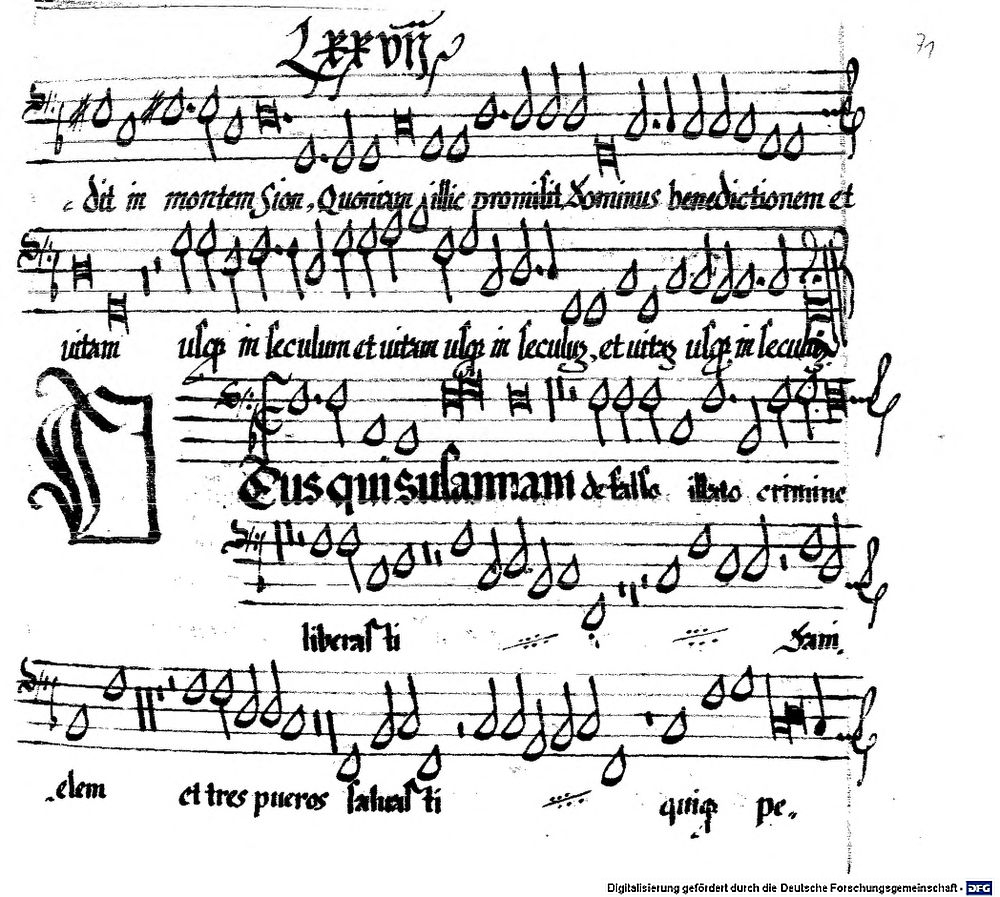 Lxxviij
71
dit in montem Sion, Quoniam illic promisit Dominus benedictionem et
uitam usq in seculum et uitam usq in seculuz, et uitaz usq in seculuz
Deus qui susannam de falso illato crimine
liberasti Dani,
elem et tres pueros saluasti quiq pe,,
Digitalisierung gefördert durch die Deutsche Forschungsgemeinschaft - DFG